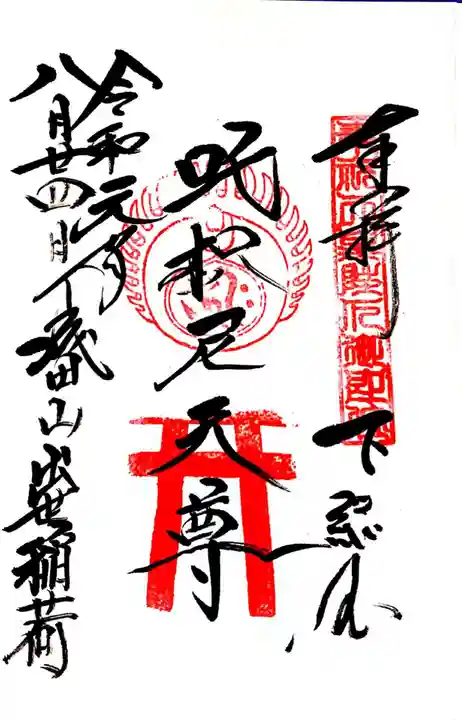 奉拝 下総国
吒枳尼天尊
令和元年
八月廿四日
成田山出世稲荷